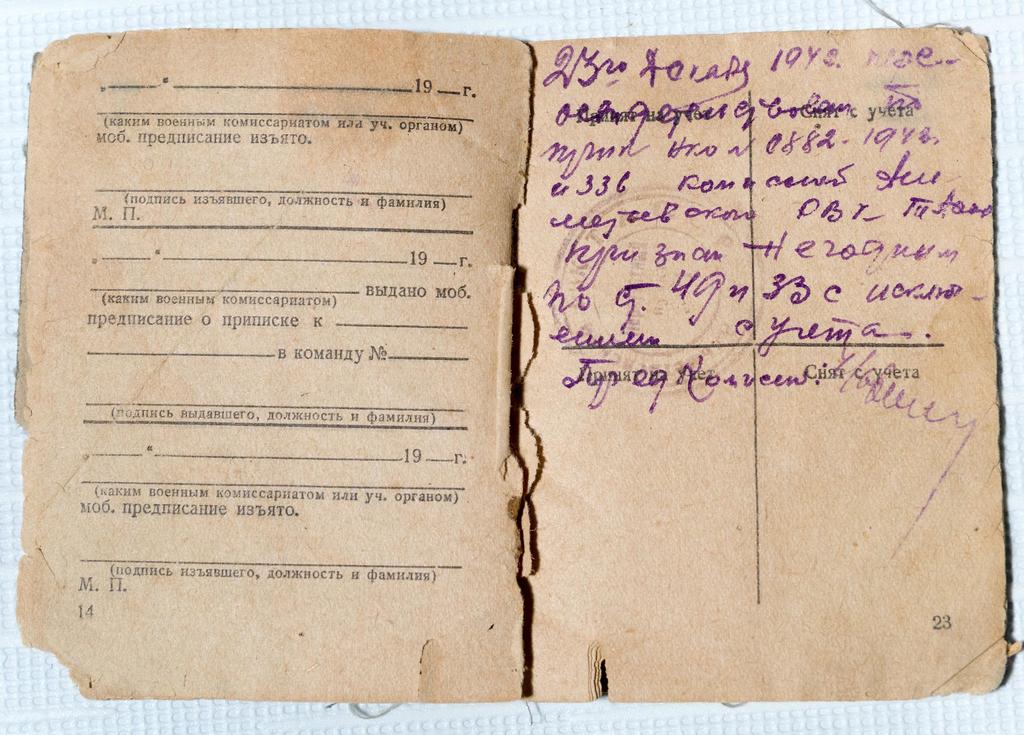 „ “ 19 г.
(каким военным комиссариатом или уч. органом)
моб. предписание изъято.
(подпись изъявшего, должность и фамилия)
М. П.
„ “ 19 г.
выдано моб.
(каким военным комиссариатом)
предписание о приписке к
в команду №
(подпись выдавшего, должность и фамилия)
„ “ 19 г.
(каким военным комиссариатом или уч. органом)
моб. предписание изъято.
(подпись изъявшего, должность и фамилия)
М. П.
14
23го 1942.
Принят на учет Снят с учета
0882-1942.
и 336 комиссией
РВК
признан Негодным
по ст. 49 и 33 с исключ-
ением с учета.
Принят на учет Снят с учета
Пред Комиссии.
23